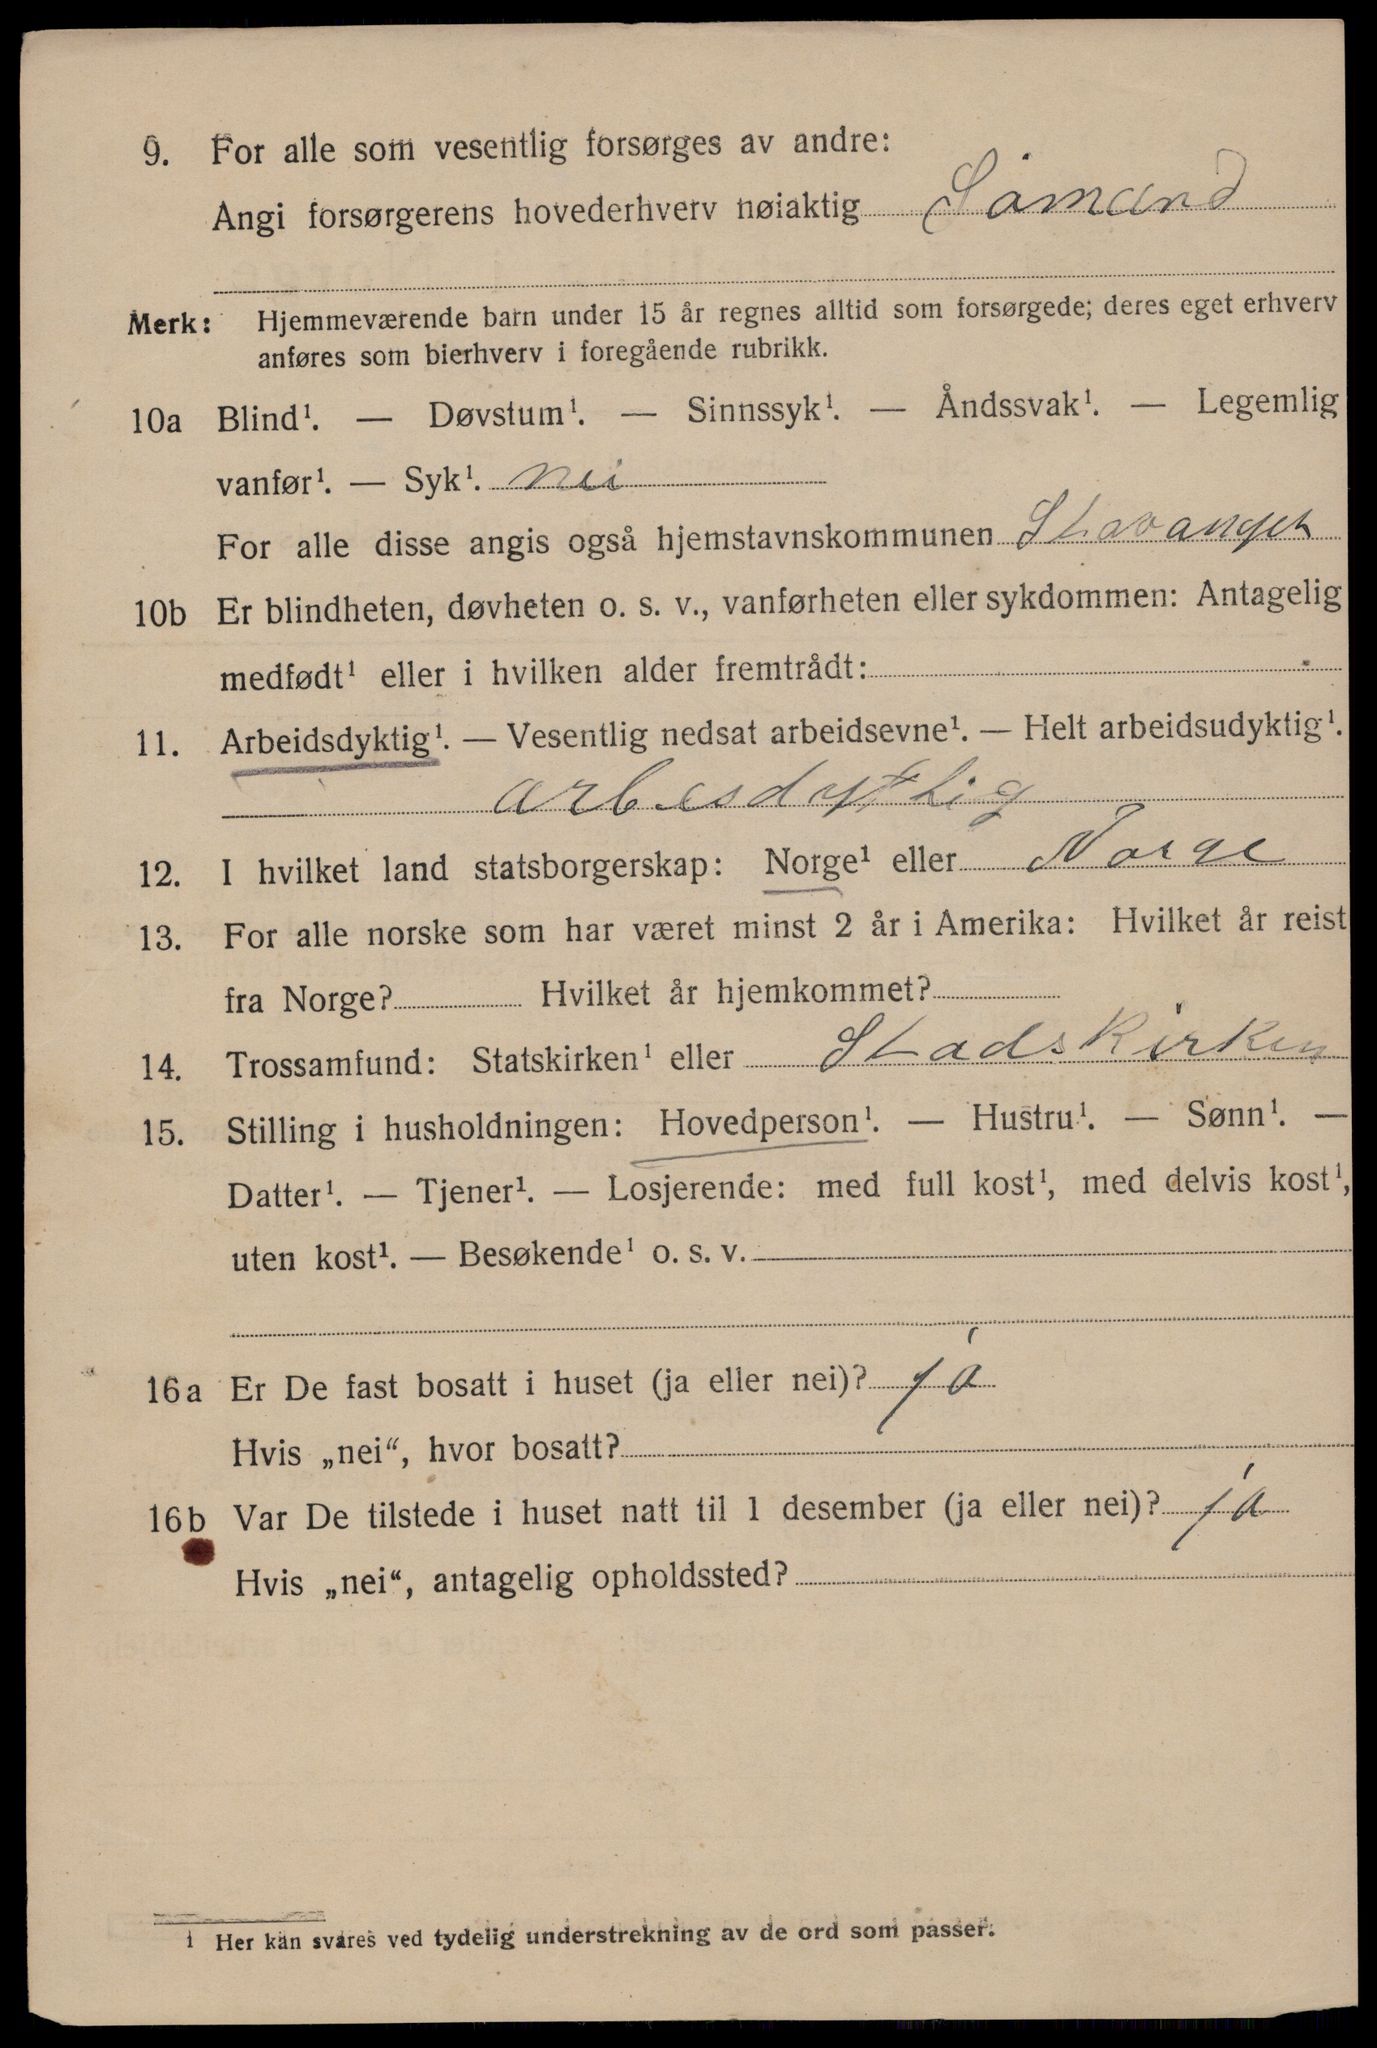 9. For alle som vesentlig forsørges av andre:
Angi forsørgerens hovederhverv nøiaktig Sömand
Merk: Hjemmeværende barn under 15 år regnes alltid som forsørgede; deres eget erhverv
anføres som bierhverv i foregående rubrikk.
10a Blind¹. — Døvstum¹. — Sinnssyk¹. — Åndssvak¹. — Legemlig
vanfør¹. — Syk¹. nei
For alle disse angis også hjemstavnskommunen Stavanger
10b Er blindheten, døvheten o. s. v., vanførheten eller sykdommen: Antagelig
medfødt¹ eller i hvilken alder fremtrådt:
11. Arbeidsdyktig¹. — Vesentlig nedsat arbeidsevne¹. — Helt arbeidsudyktig¹.
arbesdyktig
12. I hvilket land statsborgerskap: Norge¹ eller Norge
13. For alle norske som har været minst 2 år i Amerika: Hvilket år reist
fra Norge? Hvilket år hjemkommet?
14. Trossamfund: Statskirken¹ eller Stadskirken
15. Stilling i husholdningen: Hovedperson¹. — Hustru¹. — Sønn¹. —
Datter¹. — Tjener¹. — Losjerende: med full kost¹, med delvis kost¹,
uten kost¹. — Besøkende¹ o. s. v.
16a Er De fast bosatt i huset (ja eller nei)? ja
Hvis „nei“, hvor bosatt?
16b Var De tilstede i huset natt til 1 desember (ja eller nei)? ja
Hvis „nei“, antagelig opholdssted?
1 Her kan svares ved tydelig understrekning av de ord som passer.